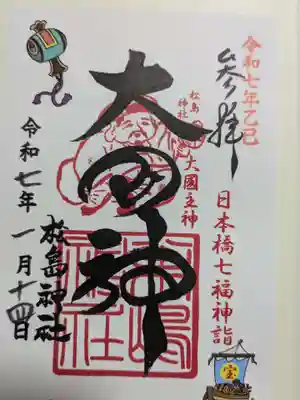 令和七年乙巳
参拝
日本橋七福神詣
松島神社
大國主神
大国神
松島神社
令和七年一月十四日
宝